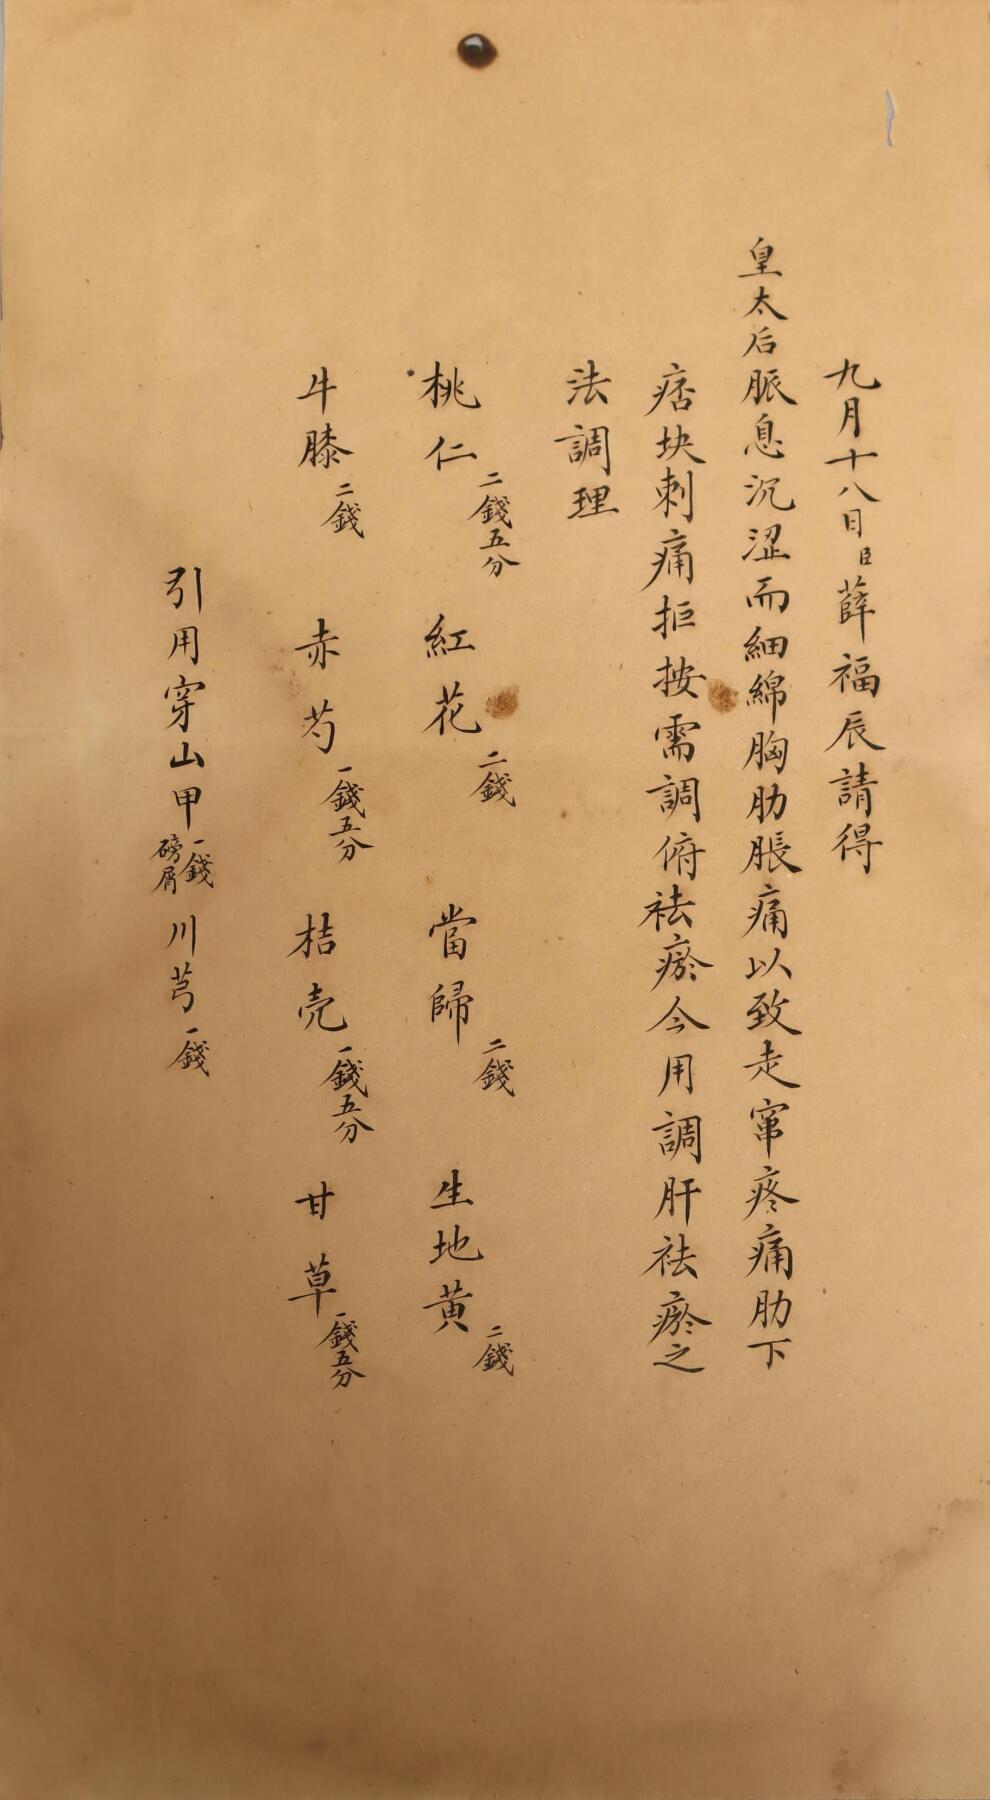 九月十八日臣薛福辰請得
皇太后脈息沉涩而細綿胸肋脹痛以致走窜疼痛肋下
痞块刺痛拒按需調俯祛瘀今用調肝祛瘀之
法調理
桃仁二錢五分 紅花二錢 當歸二錢 生地黄二錢
牛膝二錢 赤芍一錢五分 桔壳一錢五分 甘草一錢五分
引用穿山甲一錢磅屑 川芎一錢